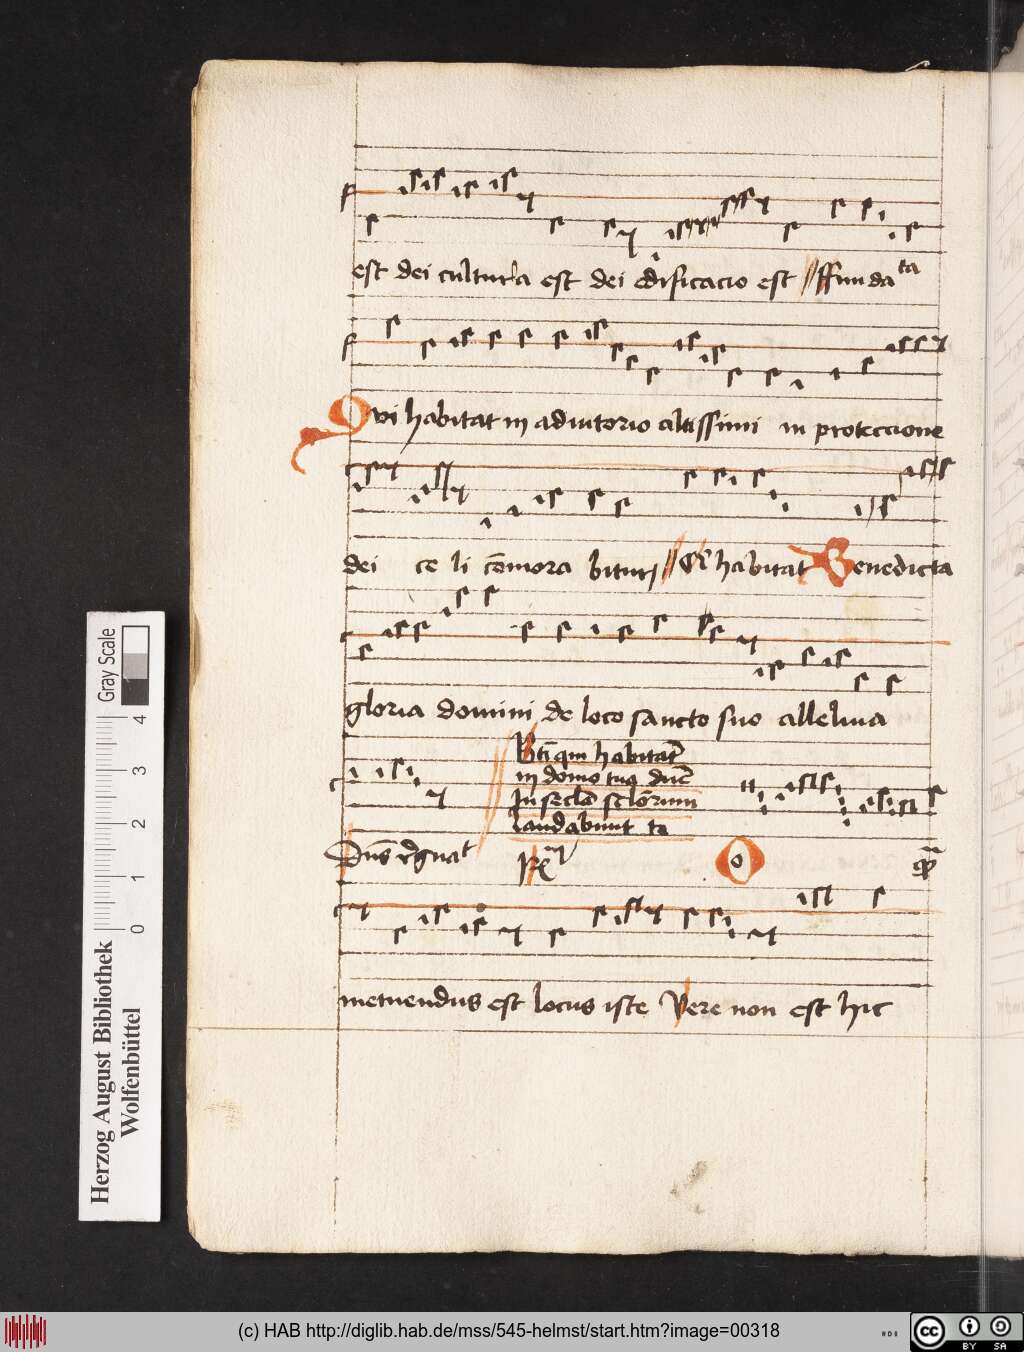 est dei cultura est dei edificacio est ffundata
Qvi habitat in adiutorio altissimi in proteccione
dei celi comorabitur Qui habitat Benedicta
gloria domini de loco sancto suo alleluia
Bti qui habitāt
in domo tua dne
In secla sclorum
laudabunt te
Dns regnat
O
metuendus est locus iste Vere non est hic
Gray Scale
4
3
2
1
0
Herzog August Bibliothek
Wolfenbüttel
(c) HAB http://diglib.hab.de/mss/545-helmst/start.htm?image=00318
cc
BY SA